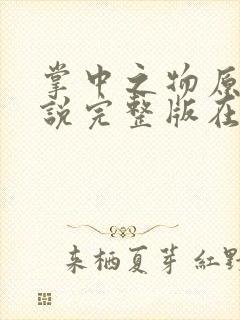 掌中之物原
說完整版在
来栖夏芽 紅野